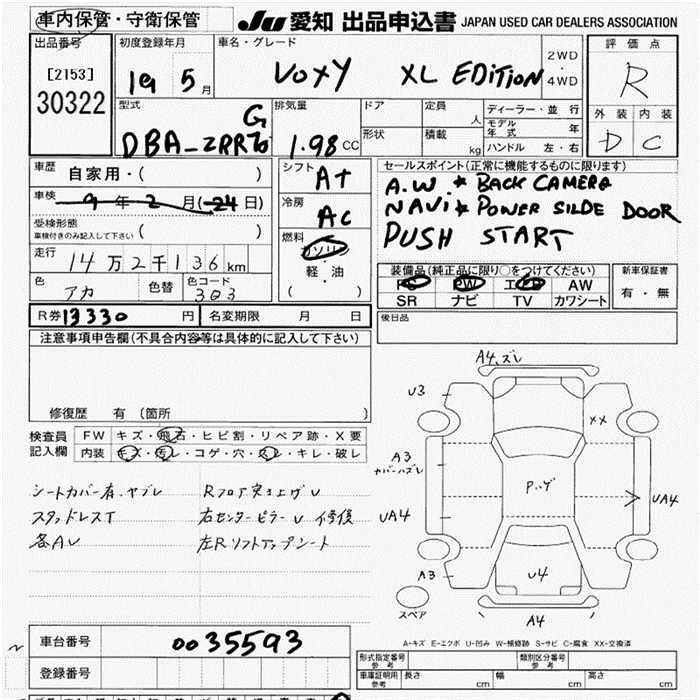 車内保管・守衛保管 JU 愛知 出品申込書 JAPAN USED CAR DEALERS ASSOCIATION
出品番号 初度登録年月 車名・グレード 2WD ・ 4WD 評価点
[2153] 19 5月 VOXY XL EDITION R
30322 型式 排気量 ドア 定員 人 ディーラー・並行 外装 内装
モデル年式 年
形状 積載 kg ハンドル 左・右
DBA-ZRR70G 1.98 CC D C
車歴 自家用・( ) シフト AT セールスポイント(正常に機能するものに限ります)
車検 9年2月(24日) 冷房 AC A.W. * BACK CAMERA
受検形態 車検付きのみ記入して下さい ( ) NAVI * POWER SILDE DOOR
燃料 ガソリン 軽・油 ( ) PUSH START
走行 14万2千136km 装備品(純正品に限り○をつけてください) 新車保証書
色 アカ 色替 色コード 303 PS PW エアB AW 有・無
SR ナビ TV カワシート
R券 13330 円 名変期限 月 日 後日品
注意事項申告欄(不具合内容等は具体的に記入して下さい)
修復歴 有 (箇所 )
検査員記入欄 FW キズ・飛石・ヒビ割・リペア跡・X要
内装 キズ・汚レ・コゲ・穴・スレ・キレ・破レ
シートカバー有.ヤブレ Rフロア突き上ゲU
スタッドレスT 右センターピラーU 修復
各AU 左Rリフトアップシート
A4.ズレ
U3
XX
A3
カバーハズレ
P.ゲ
UA4
UA4
A3
U4
スペア
A4
車台番号 0035593
登録番号
A-キズ E-エクボ U-凹み W-補修跡 S-サビ C-腐食 XX-交換済
型式指定番号 参考 類別区分番号 参考
車庫証明用 参考 長さ cm 幅 cm 高さ cm